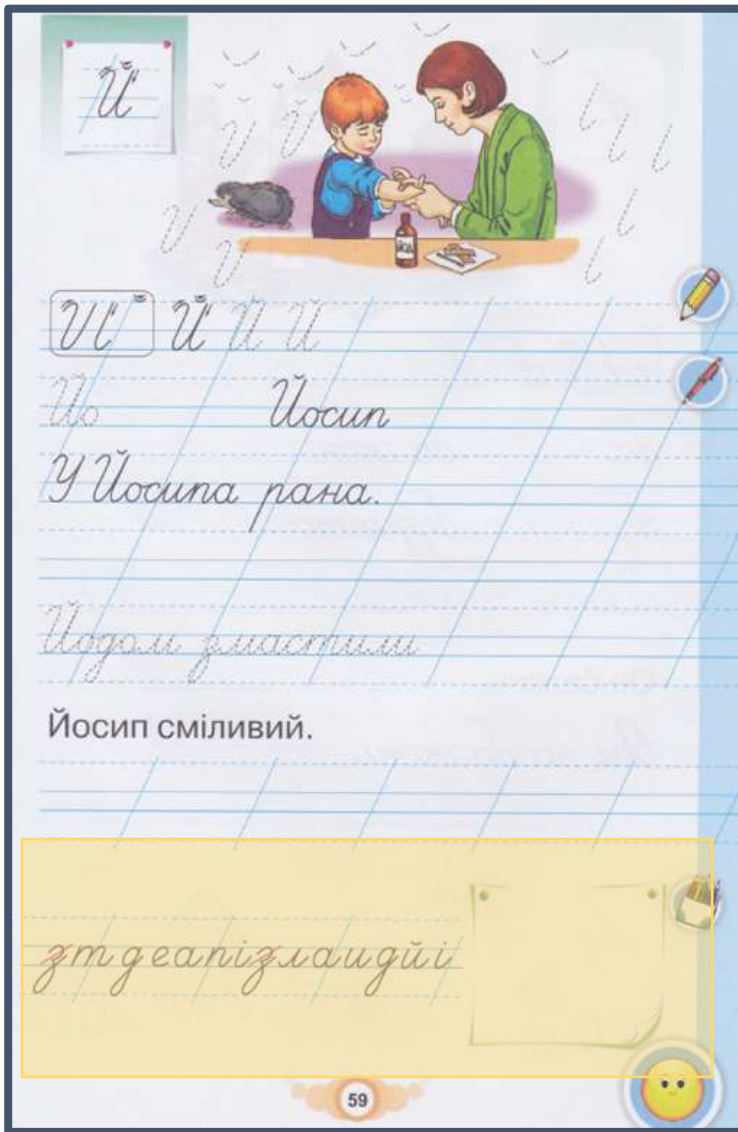 Й
ЙОД
Й Й Й Й
Йо Йосип
У Йосипа рана.
Йодом змастили
Йосип сміливий.
зтдеапізлаидйі
59